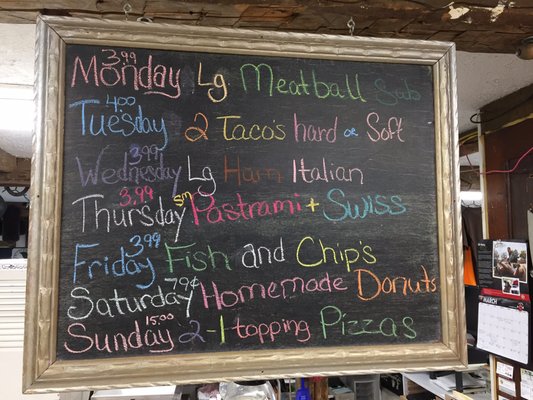 Monday 3.99 Lg Meatball Sub
Tuesday 4.00 2 Taco's hard or Soft
Wednesday 3.99 Lg Ham Italian
Thursday 3.99 sm Pastrami + Swiss
Friday 3.99 Fish and Chip's
Saturday 79¢ Homemade Donuts
Sunday 15.00 2 - 1 topping Pizzas
MARCH